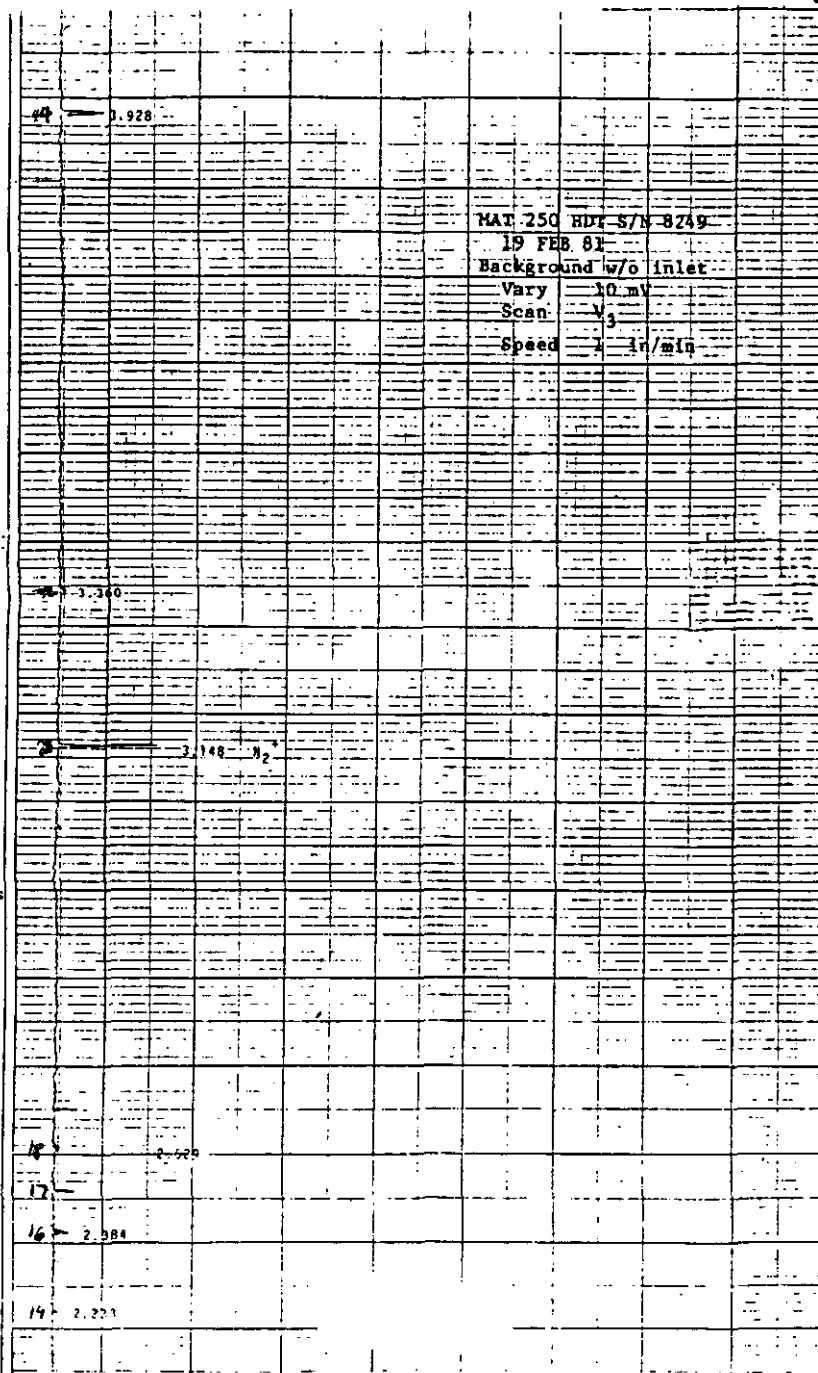 44 3.928
MAT 250 HDT S/N 8249
19 FEB 81
Background w/o inlet
Vary 10 mV
Scan V3
Speed 1 in/min
3.360
28 3.148 N2+
18
17
16
14